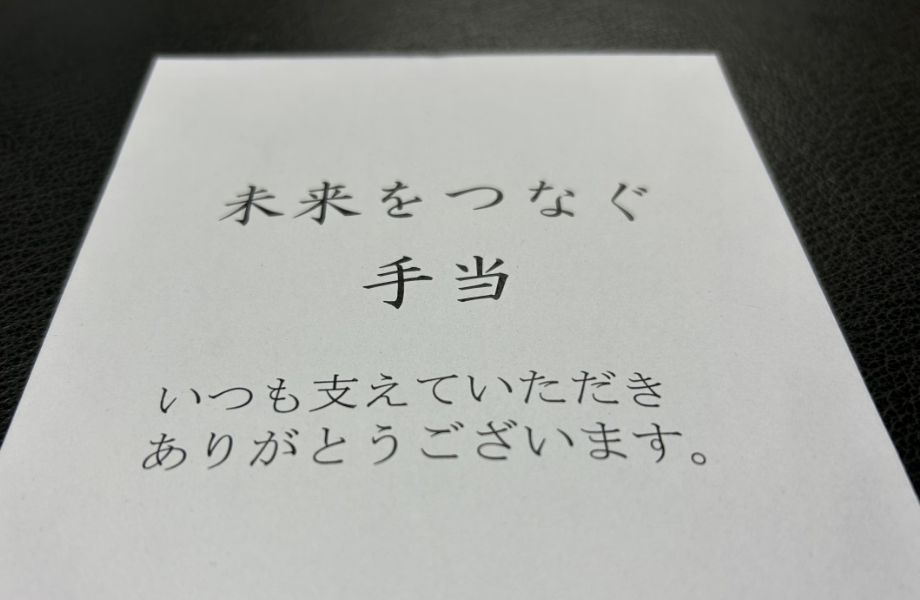 未来をつなぐ
手当
いつも支えていただき
ありがとうございます。